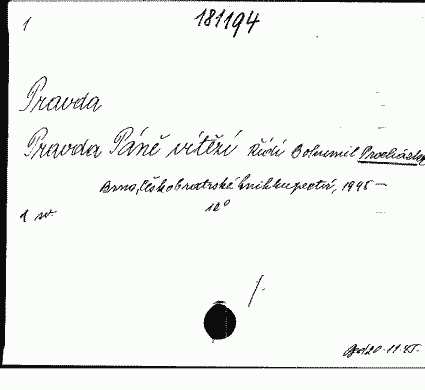 1 181194
Pravda
Pravda Páně vítězí Řídí Bohumil Procházka
Brno, Českobratrské knihkupectví, 1945 –
1 sv. 12°
20.11.45.